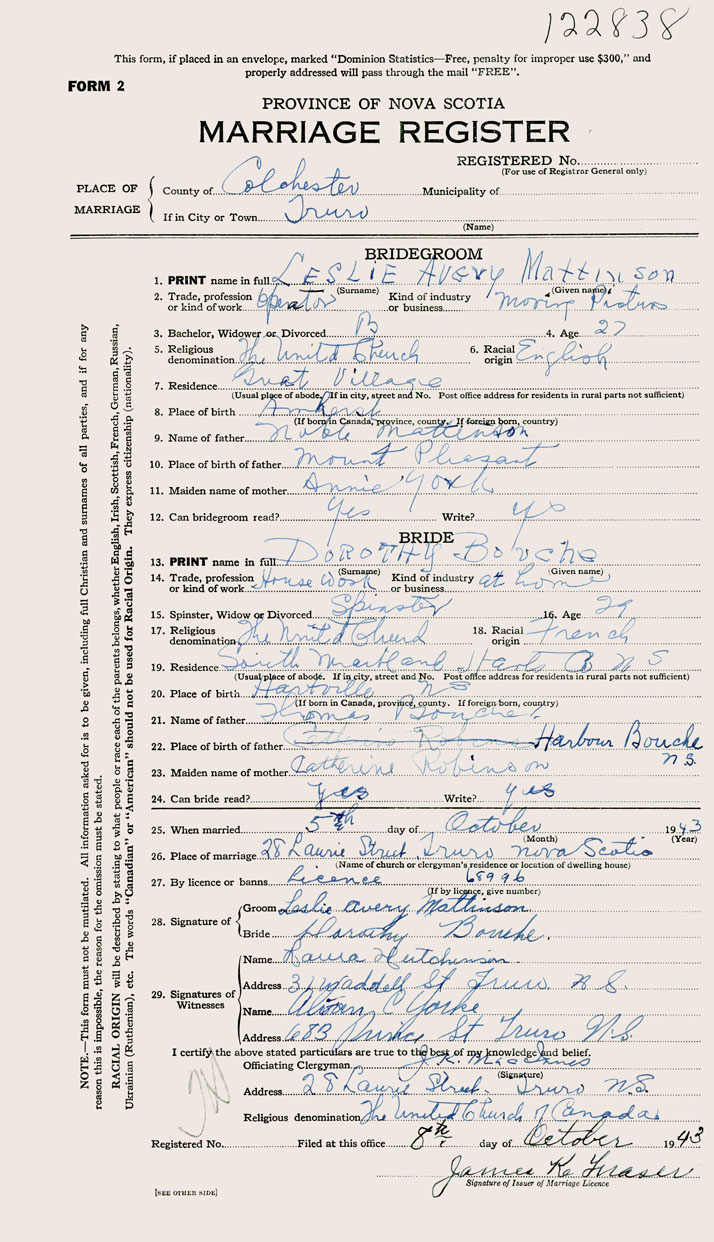 122838
This form, if placed in an envelope, marked "Dominion Statistics—Free, penalty for improper use $300," and
properly addressed will pass through the mail "FREE".
FORM 2
PROVINCE OF NOVA SCOTIA
MARRIAGE REGISTER
REGISTERED No.
(For use of Registrar General only)
PLACE OF MARRIAGE
County of Colchester Municipality of
If in City or Town Truro
(Name)
BRIDEGROOM
1. PRINT name in full LESLIE AVERY Mattinson
(Surname) (Given name)
2. Trade, profession or kind of work Operator Kind of industry or business Moving Pictures
3. Bachelor, Widower or Divorced B 4. Age 27
5. Religious denomination The United Church 6. Racial origin English
7. Residence Great Village
(Usual place of abode. If in city, street and No. Post office address for residents in rural parts not sufficient)
8. Place of birth Amherst
(If born in Canada, province, county. If foreign born, country)
9. Name of father Noble Mattinson
10. Place of birth of father Mount Pleasant
11. Maiden name of mother Annie York
12. Can bridegroom read? Yes Write? yes
BRIDE
13. PRINT name in full DOROTHY Bouche
(Surname) (Given name)
14. Trade, profession or kind of work House Work Kind of industry or business at home
15. Spinster, Widow or Divorced Spinster 16. Age 29
17. Religious denomination The United Church 18. Racial origin French
19. Residence South Maitland Hants Co N S
(Usual place of abode. If in city, street and No. Post office address for residents in rural parts not sufficient)
20. Place of birth Hartville N S
(If born in Canada, province, county. If foreign born, country)
21. Name of father Thomas Bouche
22. Place of birth of father Harbour Bouche
N.S.
23. Maiden name of mother Catherine Robinson
24. Can bride read? yes Write? yes
25. When married 5th day of October 1943
(Month) (Year)
26. Place of marriage 28 Laurie Street, Truro Nova Scotia
(Name of church or clergyman's residence or location of dwelling house)
27. By licence or banns Licence 68996
(If by licence, give number)
28. Signature of
Groom Leslie Avery Mattinson
Bride Dorothy Bouche.
29. Signatures of Witnesses
Name Laura Hutchinson
Address 31 Waddell St Truro N.S.
Name C Yorke
Address 683 Prince St Truro N.S.
I certify the above stated particulars are true to the best of my knowledge and belief.
Officiating Clergyman J. K. MacInnes
(Signature)
Address 28 Laurie Street Truro N.S.
Religious denomination The United Church of Canada
Registered No. Filed at this office 8th day of October 1943
James K. Fraser
Signature of Issuer of Marriage Licence
[SEE OTHER SIDE]
NOTE.—This form must not be mutilated. All information asked for is to be given, including full Christian and surnames of all parties, and if for any
reason this is impossible, the reason for the omission must be stated.
RACIAL ORIGIN will be described by stating to what people or race each of the parents belongs, whether English, Irish, Scottish, French, German, Russian,
Ukrainian (Ruthenian), etc. The words "Canadian" or "American" should not be used for Racial Origin. They express citizenship (nationality).